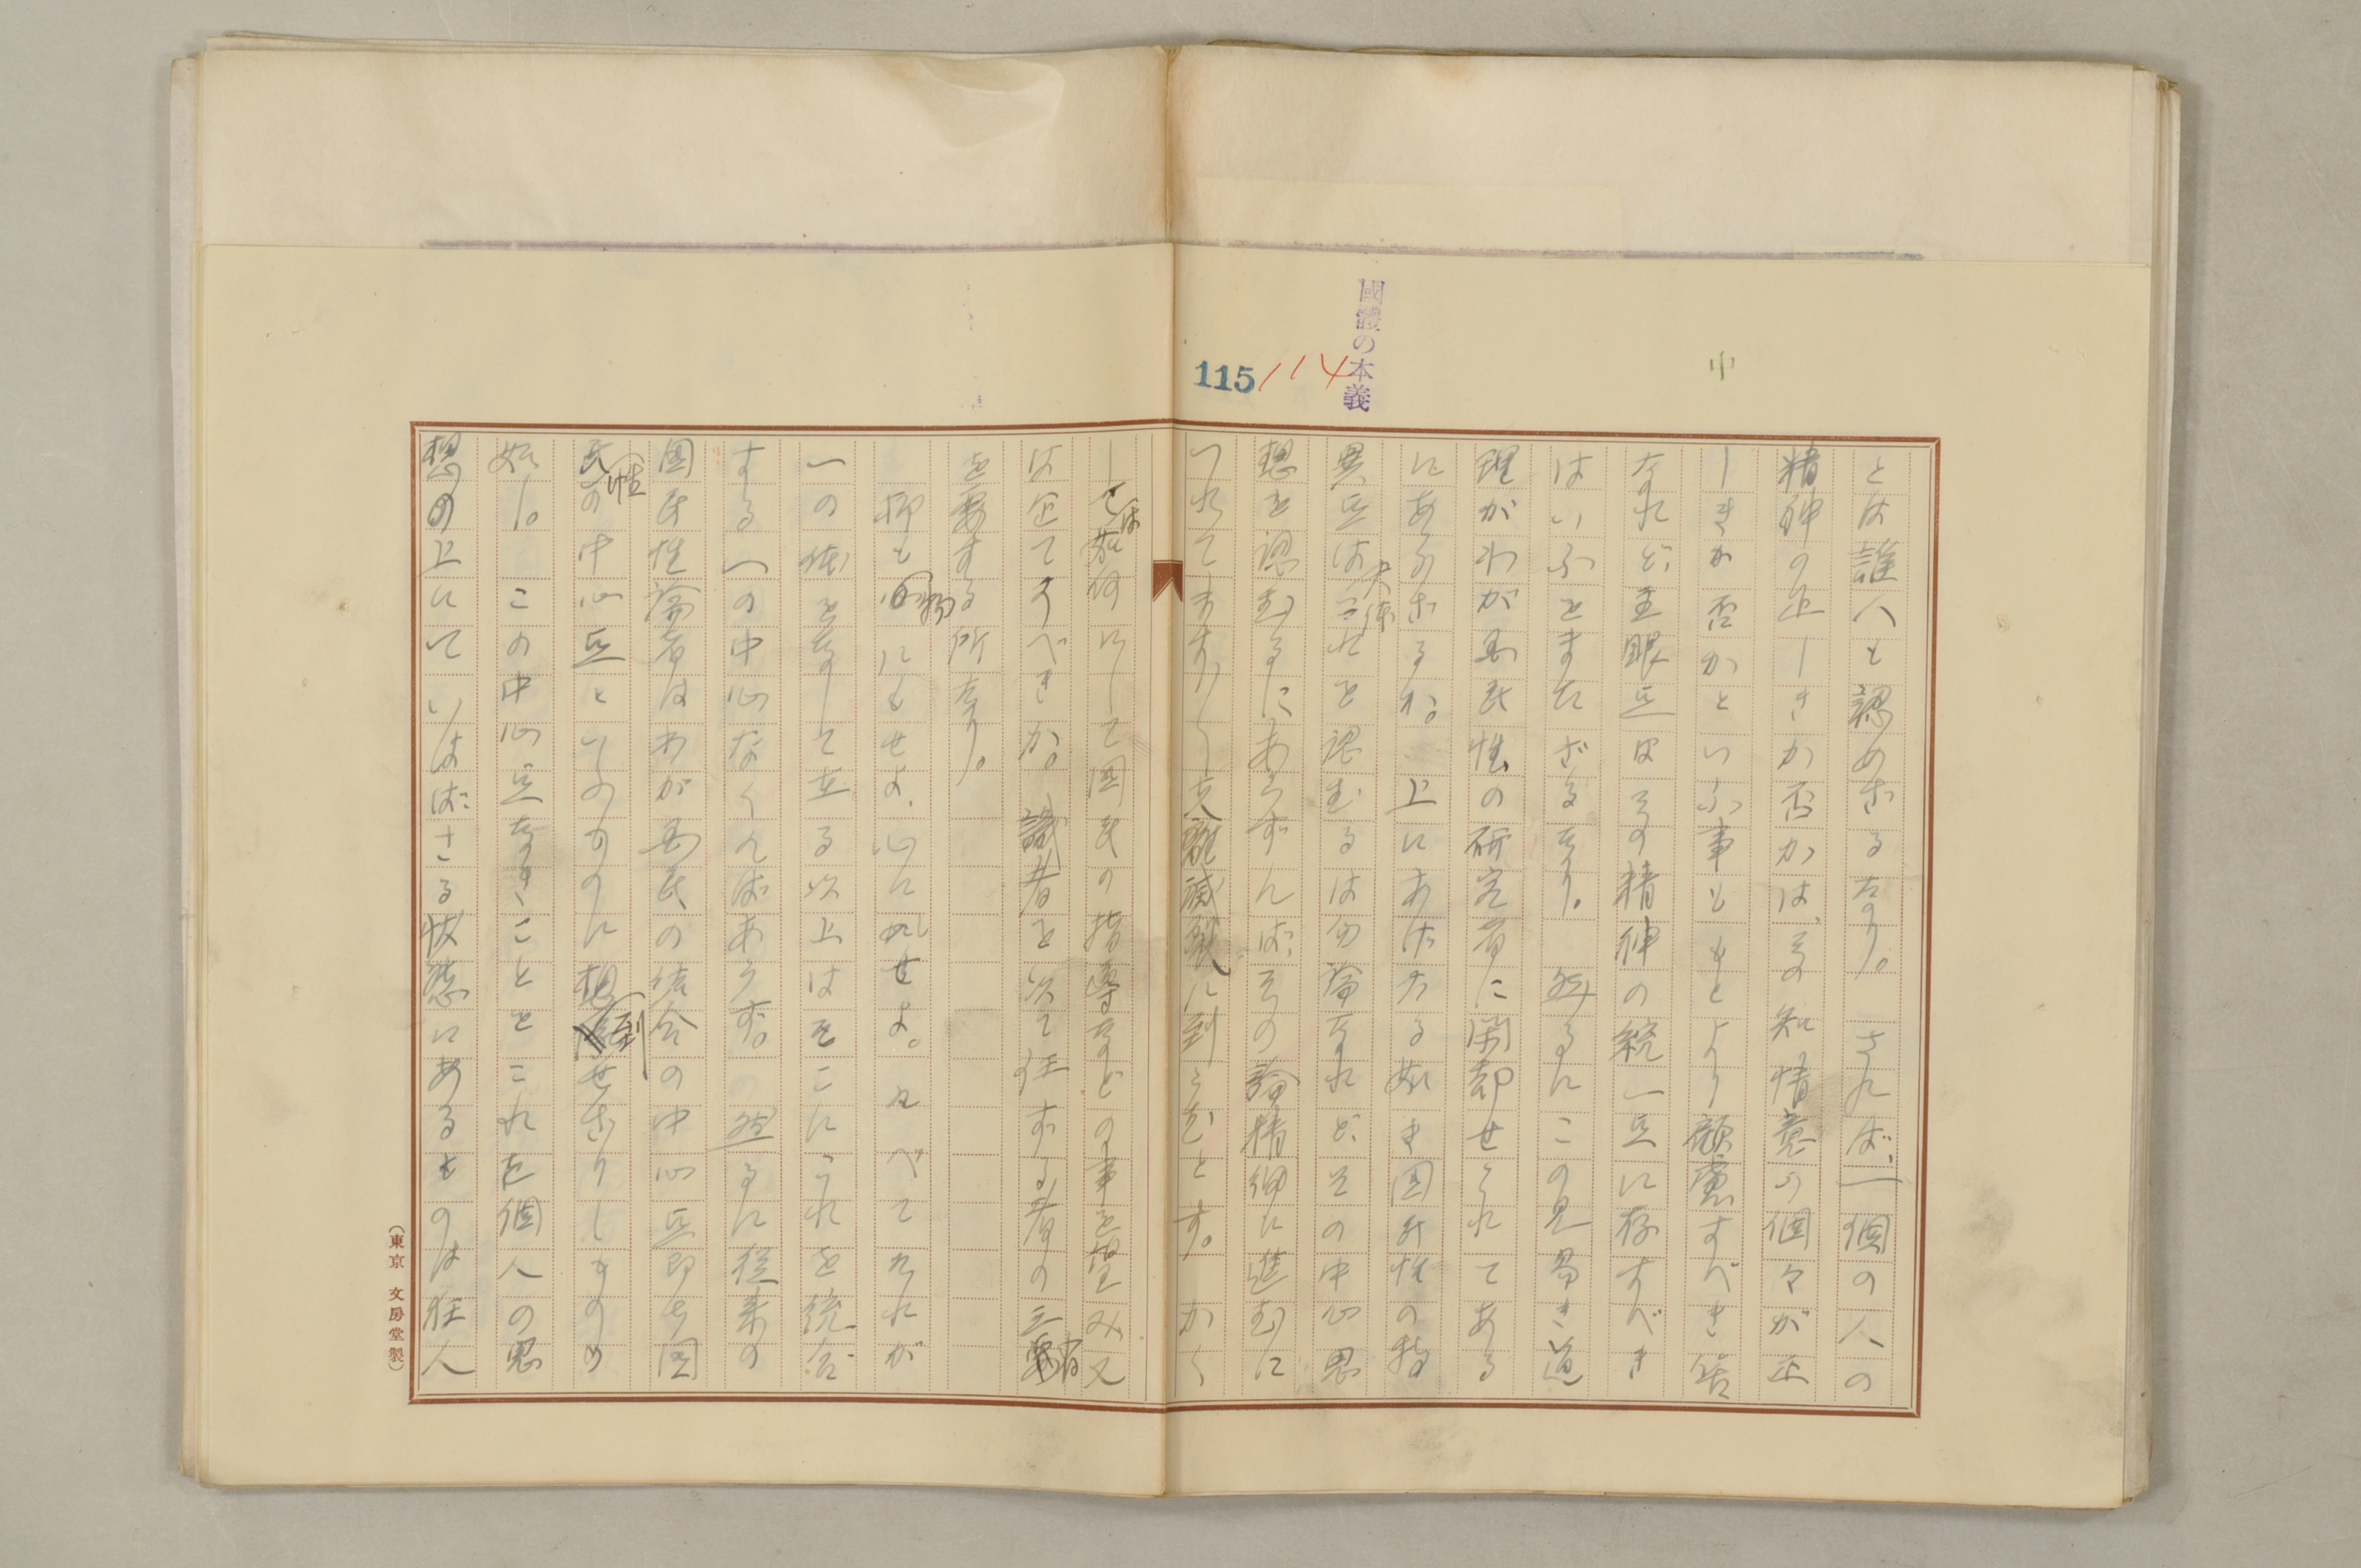 國體の本義
中
115
114
とは誰人も認めざるなり。されば、一個の人の
精神の正しきか否かは、その知情意の個々が正
しきか否かといふ事ももとより顧慮すべき
なれど、主眼点はその精神の統一点に存すべき
はいふをまたざるなり。然るにこの見易き道
理がわが国民性の研究者に閑却せられてある
にあらざるか。上にあげたる如き国民性の特
異点は大体これを認むるは勿論なれど、その中心思
想を認むるにあらずんば、その論精細に進むに
つれてますます支離滅裂に到らむとす。かく
しては如何にして国民の指導などの事を望み又
は企てうべきか。識者を以て任ずる者の三省
を要する所なり。
抑も物にもせよ、心にもせよ。すべてそれが
一の体をなして立る以上はそこにこれを統合
する一の中心なくんばあらず。然るに従来の
国民性論者はわが国民の結合の中心点即ち国
民性の中心点といふものに想到せざりしものの
如し。この中心点なきことこれを個人の思
想の上にていはばさる状態にあるものは狂人
(東京 文房堂製)